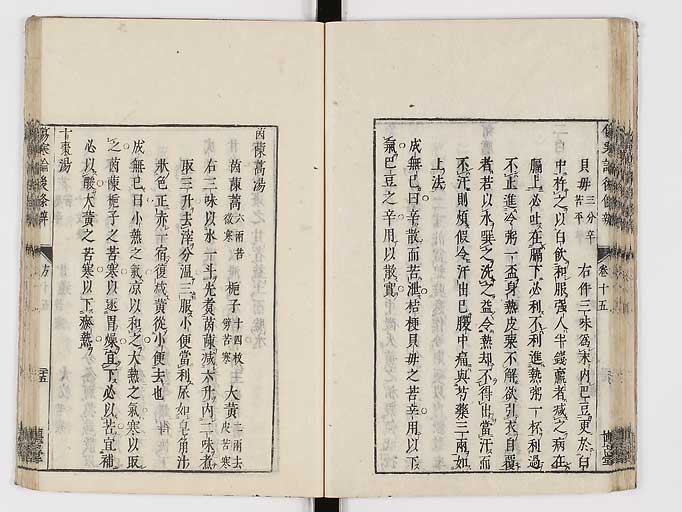 貝毋 三分辛苦平 右件三味爲末内巴豆更於臼
中杵之以白飲和服强人半錢羸者减之病在
膈上必吐在膈下必利不利進熱粥一杯利過
不止進冷粥一盃身熱皮粟不解欲引衣自覆
者若以水潠之洗之益令熱却不得出當汗而
不汗則煩假令汗出已腹中痛與芍藥三兩如
上法
成無已曰辛散而苦泄桔梗貝毋之苦辛用以下
氣巴豆之辛用以散實
茵蔯蒿湯
茵蔯蒿 六兩苦微寒 梔子 十四枚苦寒 大黄 二兩去皮苦寒
右三味以水一斗先煮茵蔯减六升内二味煮
取三升去滓分温三服小便當利尿如皂角汁
狀色正赤一宿復减黄從小便去也
成無已曰小熱之氣凉以和之大熱之氣寒以取
之茵蔯梔子之苦寒以逐胃燥宜下必以苦宜補
必以酸大黄之苦寒以下瘀熱
十棗湯
傷寒論後条辨
方 十五
卷十五
博古堂